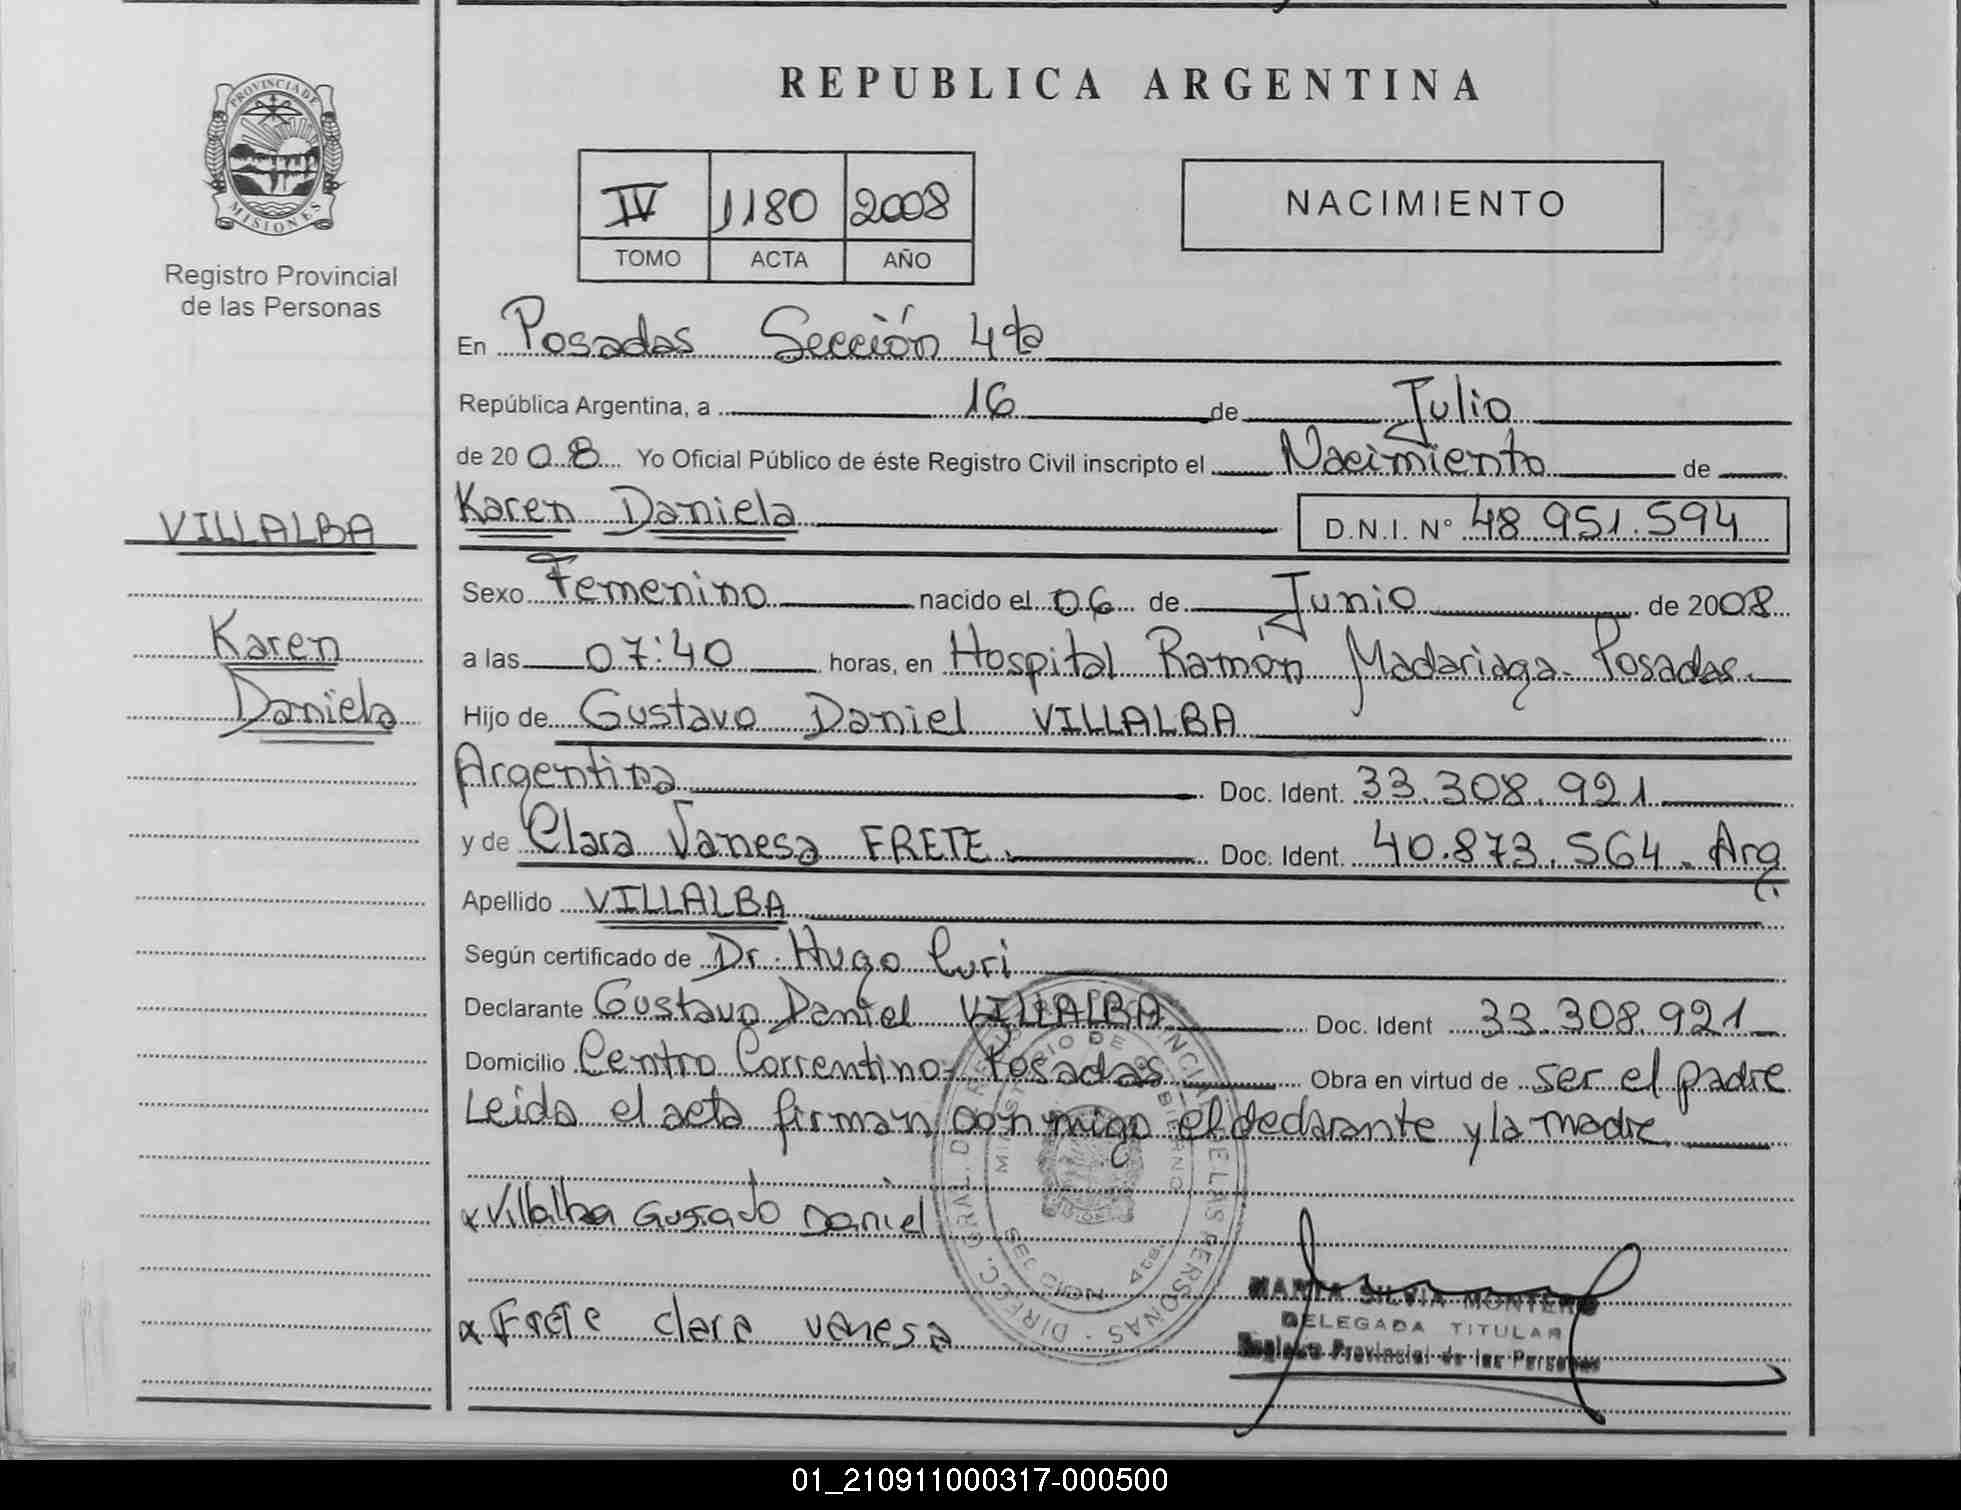 REPUBLICA ARGENTINA
PROVINCIA DE
MISIONES
Registro Provincial
de las Personas
IV 1180 2008
TOMO ACTA AÑO
NACIMIENTO
En Posadas Sección 4ta
República Argentina, a 16 de Julio
de 2008 Yo Oficial Público de éste Registro Civil inscripto el Nacimiento de
VILLALBA
Karen Daniela D.N.I. N° 48.951.594
Sexo Femenino nacido el 06 de Junio de 2008
Karen
a las 07:40 horas, en Hospital Ramón Madariaga - Posadas.
Daniela
Hijo de Gustavo Daniel VILLALBA
Argentina Doc. Ident. 33.308.921
y de Clara Vanesa FRETE. Doc. Ident. 40.873.564. Arg.
Apellido VILLALBA
Según certificado de Dr. Hugo Curi
Declarante Gustavo Daniel VILLALBA Doc. Ident 33.308.921
Domicilio Centro Correntino - Posadas Obra en virtud de ser el padre
Leida el acta firman conmigo el declarante y la madre.
x Villalba Gustado Daniel
x Frete clara vanesa
MARTA SILVIA MONTERO
DELEGADA TITULAR
Registro Provincial de las Personas
01_210911000317-000500